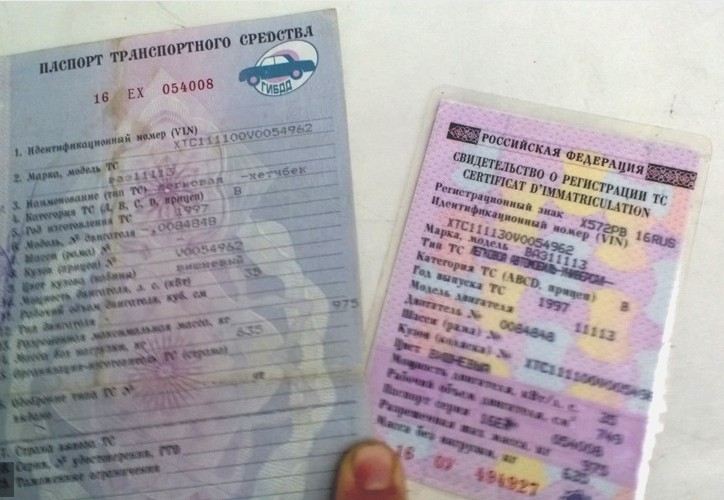 ПАСПОРТ ТРАНСПОРТНОГО СРЕДСТВА
ГИБДД
16 ЕХ 054008
1. Идентификационный номер (VIN) XTC111100V0054962
2. Марка, модель ТС ВАЗ11113
3. Наименование (тип ТС) легковая -хетчбек
4. Категория ТС (А, В, С, D, прицеп) В
5. Год изготовления ТС 1997
6. Модель, № двигателя - ,0084848
7. Шасси (рама) №
8. Кузов (прицеп) № V0054962
9. Цвет кузова (кабины) вишневый
10. Мощность двигателя, л. с. (кВт) 35
Рабочий объем двигателя, куб. см
Тип двигателя
Разрешенная максимальная масса, кг 975
Масса без нагрузки, кг 635
Организация-изготовитель ТС (страна)
Одобрение типа ТС № от
Страна вывоза ТС
Серия, № удостоверения, ГТД
Таможенные ограничения
РОССИЙСКАЯ ФЕДЕРАЦИЯ
СВИДЕТЕЛЬСТВО О РЕГИСТРАЦИИ ТС
CERTIFICAT D'IMMATRICULATION
Регистрационный знак Х572РВ 16RUS
Идентификационный номер (VIN)
XTC111130V0054962
Марка, модель ВАЗ11113
Тип ТС ЛЕГКОВОЙ АВТОМОБИЛЬ
Категория ТС (ABCD, прицеп) В
Год выпуска ТС 1997
Модель двигателя 11113
Двигатель № 0084848
Шасси (рама) №
Кузов (коляска) № XTC111100V005496
Цвет ВИШНЕВЫЙ
Мощность двигателя, кВт/л. с. 35
Рабочий объем двигателя, см³ 749
Паспорт серия 16ЕХ 054008
Разрешенная max масса, кг 975
Масса без нагрузки, кг 635
16 ОУ 494927